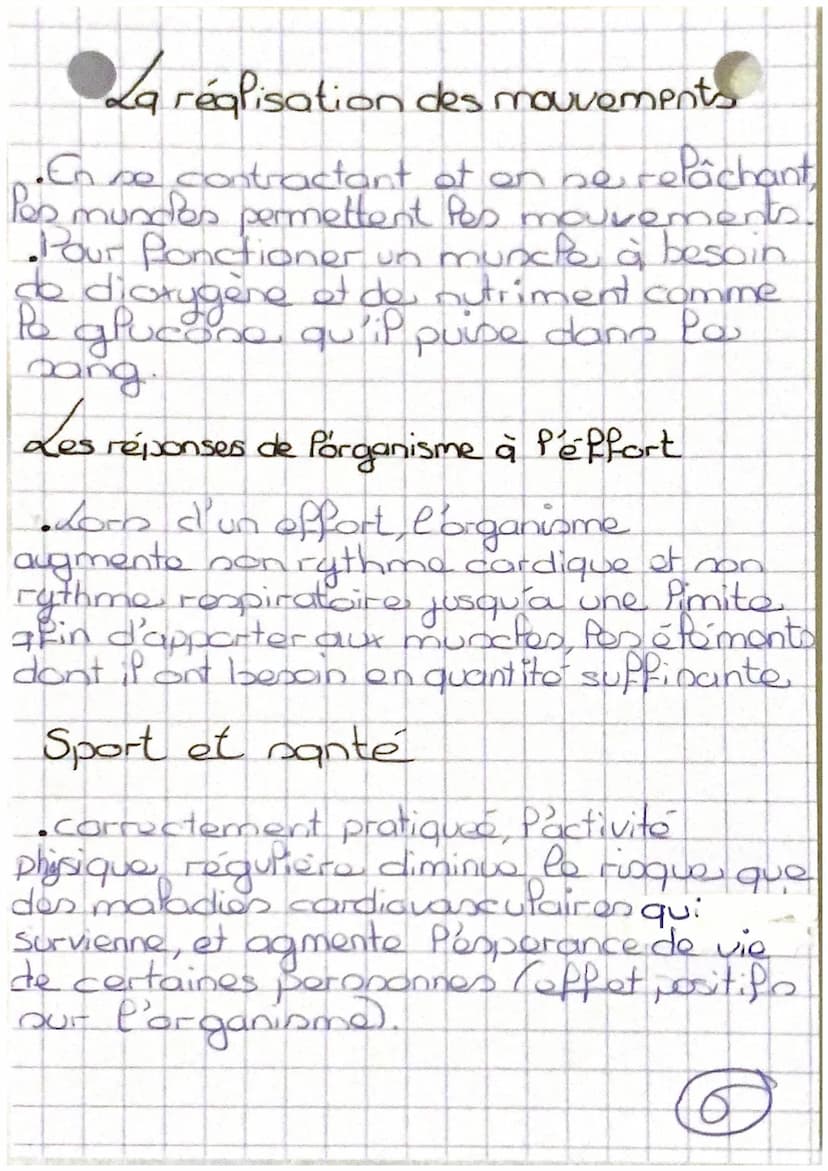 La réalisation des mouvements
. En se contractant et en se relâchant,
les muscles permettent les mouvements.
. Pour fonctioner un muscle à besoin
de dioxygène et de nutriment comme
le glucose qu'il puise dans le
sang.
Les réponses de l'organisme à l'éffort
. Lors d'un effort, l'organisme
augmente son rythme cardique et son
rythme respiratoire jusqu'a une limite
afin d'apporter aux muscles, les éléments
dont il ont besoin en quantité suffisante
Sport et santé
. correctement pratiqueé, l'activité
physique régulière diminue le risque que
des maladies cardiovasculaires qui
survienne, et agmente l'ésperance de vie
de certaines personnes (effet positifs
sur l'organisme).
6